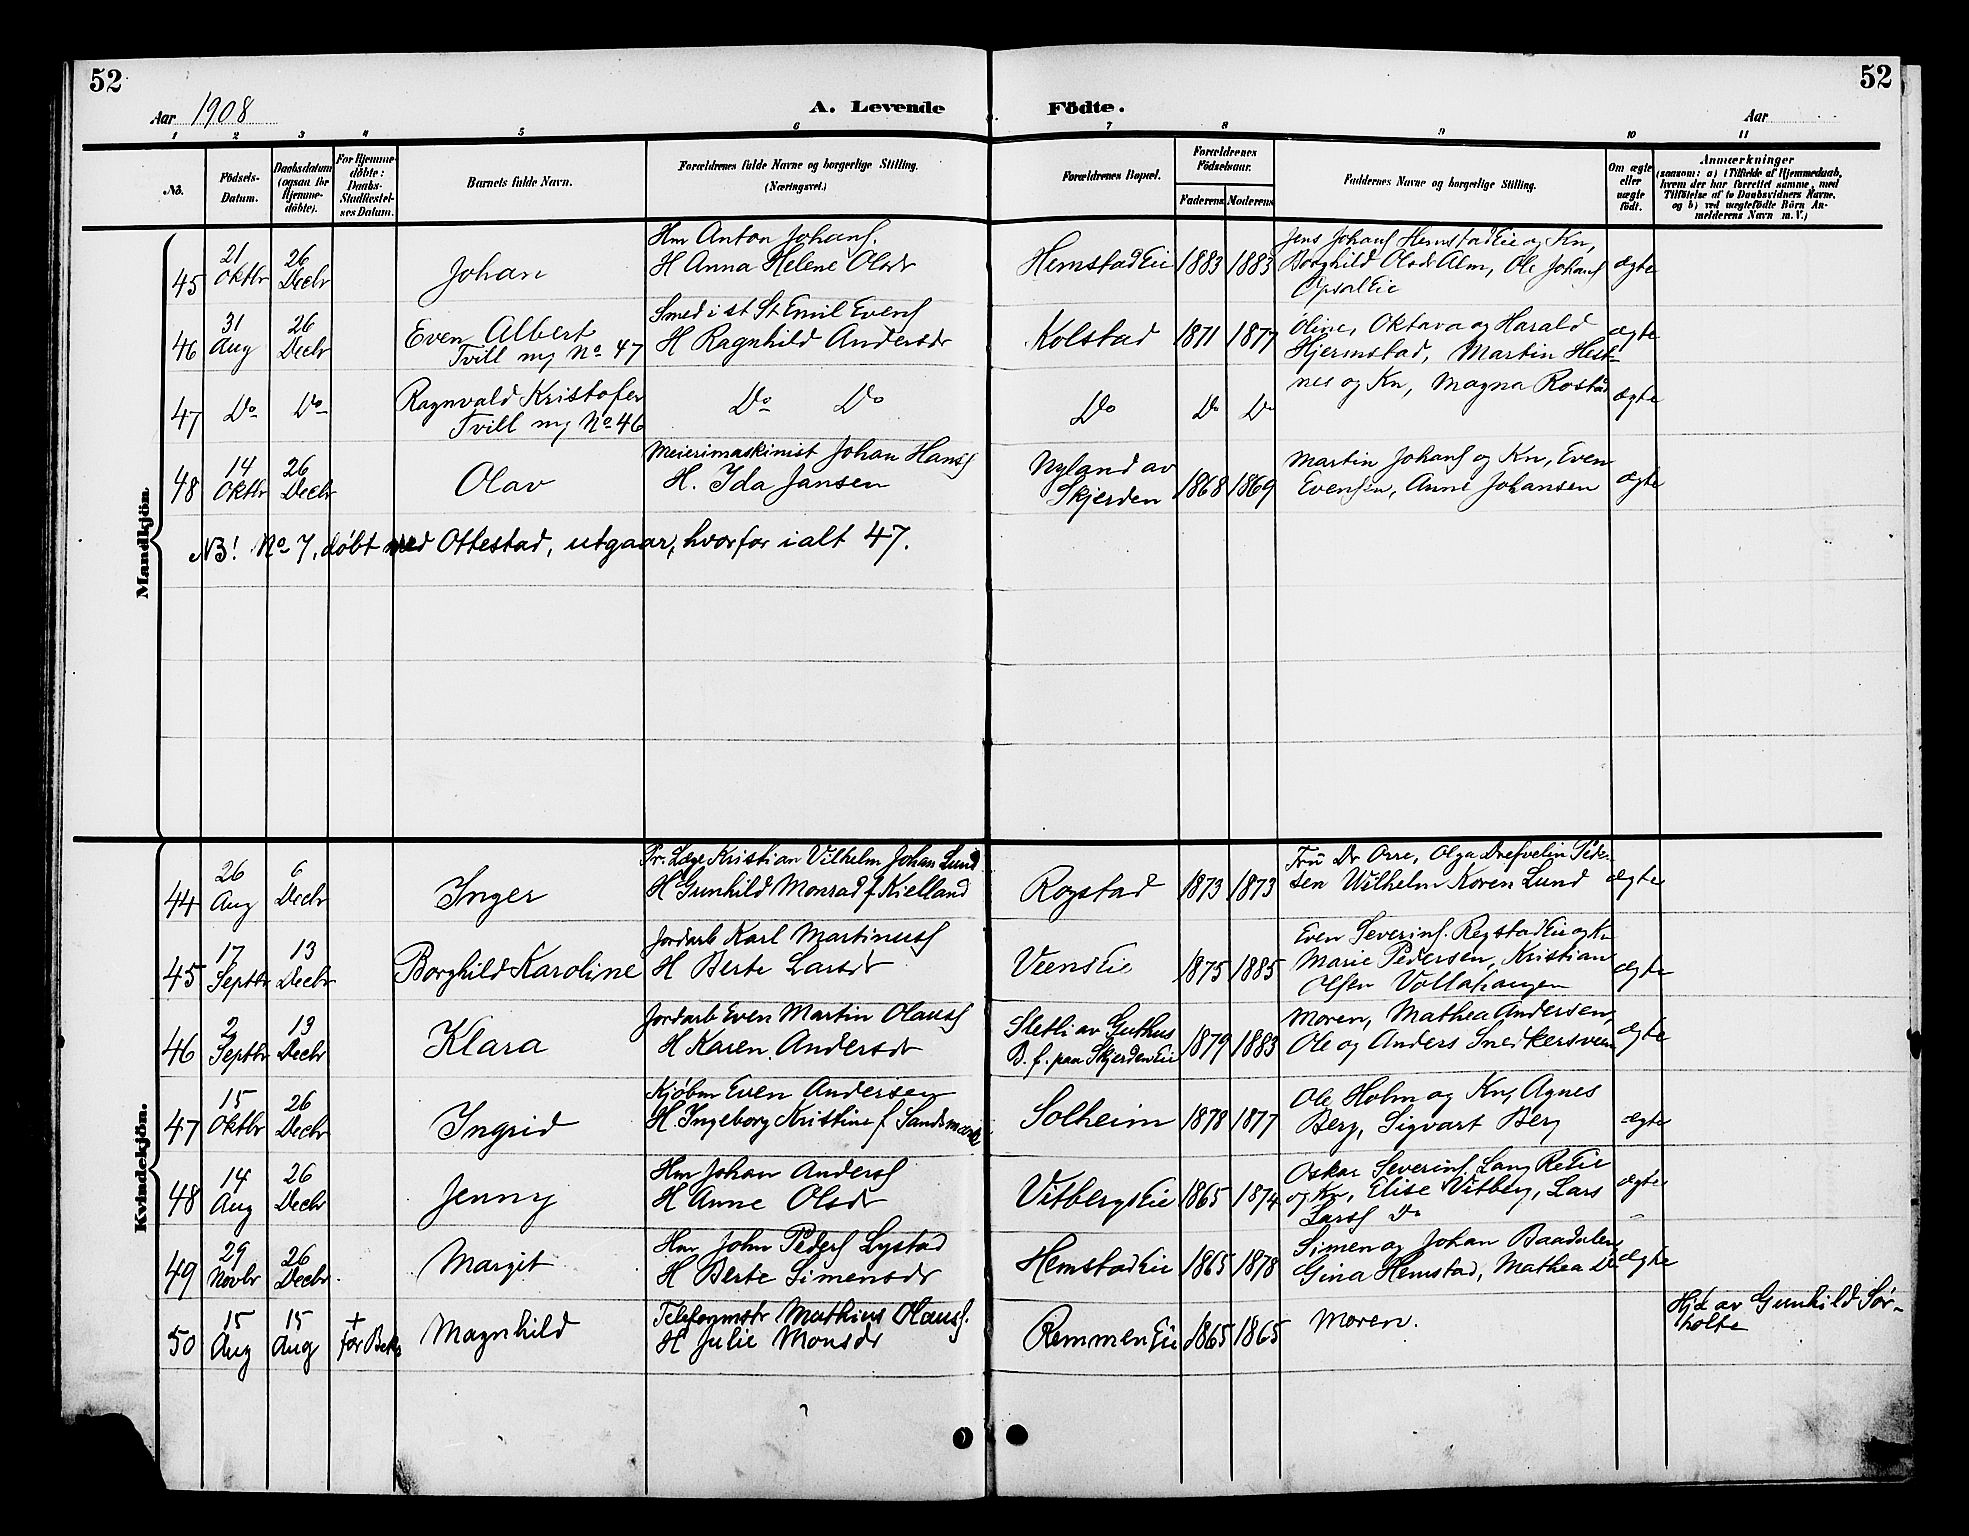 52
52
Aar 1908
A. Levende Födte.
Aar
1 2 3 4 5 6 7 8 9 10 11
No.
Födsels-Datum.
Daabsdatum (ogsaa for Hjemme-döbte).
For Hjemme-döbte: Daabs-Stadfæstel-ses Datum.
Barnets fulde Navn.
Forældrenes fulde Navne og borgerlige Stilling. (Næringsvei.)
Forældrenes Bopæl.
Forældrenes Födselsaar.
Faderens Moderens
Faddernes Navne og borgerlige Stilling.
Om ægte eller uægte födt.
Anmærkninger
(saasom: a) i Tilfælde af Hjemmedaab,
hvem der har forrettet samme, med
Tilföielse af to Daabsvidners Navne,
og b) ved uægtefödte Börn An-
melderens Navn m. V.)
Mandkjön.
45 21 Oktbr 26 Decbr Johan Hm Anton Johans. H Anna Helene Olsdr HemstadEie 1883 1883 Jens Johans HemstadEie og Kn, Borghild Olsdr Alm, Ole Johans OpsalEie ægte
46 31 Aug 26 Decbr Even Albert Tvill m No 47 Smed i st St Emil Evens H Ragnhild Andersdr Kolstad 1871 1877 Oline, Oktava og Harald Hjermstad, Martin Hest- ægte
47 Do Do Ragnvald Kristofer Tvill m No 46 Do Do Do Do Do nes og Kn, Magna Rostad ægte
48 14 Oktbr 26 Decbr Olav Meierimaskinist Johan Hans H. Ida Jansen Nyland av Skjerden 1868 1869 Martin Johans og Kn, Even Evensen, Anne Johansen ægte
NB! No 7, døbt ved Ottestad, utgaar, hvorfor ialt 47.
Kvindekjön.
44 26 Aug 6 Decbr Inger Pr. Læge Kristian Vilhelm Johan Lund H Gunhild Monrad f Kielland Rogstad 1873 1873 Fru Dr Orre, Olga Peder-sen Wilhelm Koren Lund ægte
45 17 Septbr 13 Decbr Borghild Karoline Jordarb Karl Martinus H Berte Larsdr VeensEie 1875 1885 Even Severins. RogstadEie og Kn Marie Pedersen, Kristian Olsen Vollahaugen ægte
46 2 Septbr 13 Decbr Klara Jordarb Even Martin Olaus H Karen Andersdr Sletli av Guthus D. f. paa SkjerdenEie 1879 1883 Moren, Mathea Andersen, Ole og Anders Snekkersveen ægte
47 15 Oktbr 26 Decbr Ingrid Kjøbm Even Andersen H. Ingeborg Kristine f Sandsmark Solheim 1878 1877 Ole Holm og Kn, Agnes Berg, Sigvart Berg ægte
48 14 Aug 26 Decbr Jenny Hm Johan Anders H Anne Olsdr VitbergsEie 1865 1874 Oskar Severins. Lang ReEie og Kn, Elise Vitberg, Lars Lars Do ægte
49 29 Novbr 26 Decbr Margit Hm John Peders Lystad H Berte Simensdr HemstadEie 1865 1878 Simen og Johan Baadalen Gina Hemstad, Mathea Do ægte
50 15 Aug 15 Aug + før Bek. Magnhild Telefonmstr Mathius Olaus. H Julie Monsdr RemmenEie 1865 1865 Moren. Hjd av Gunhild Sør-holte